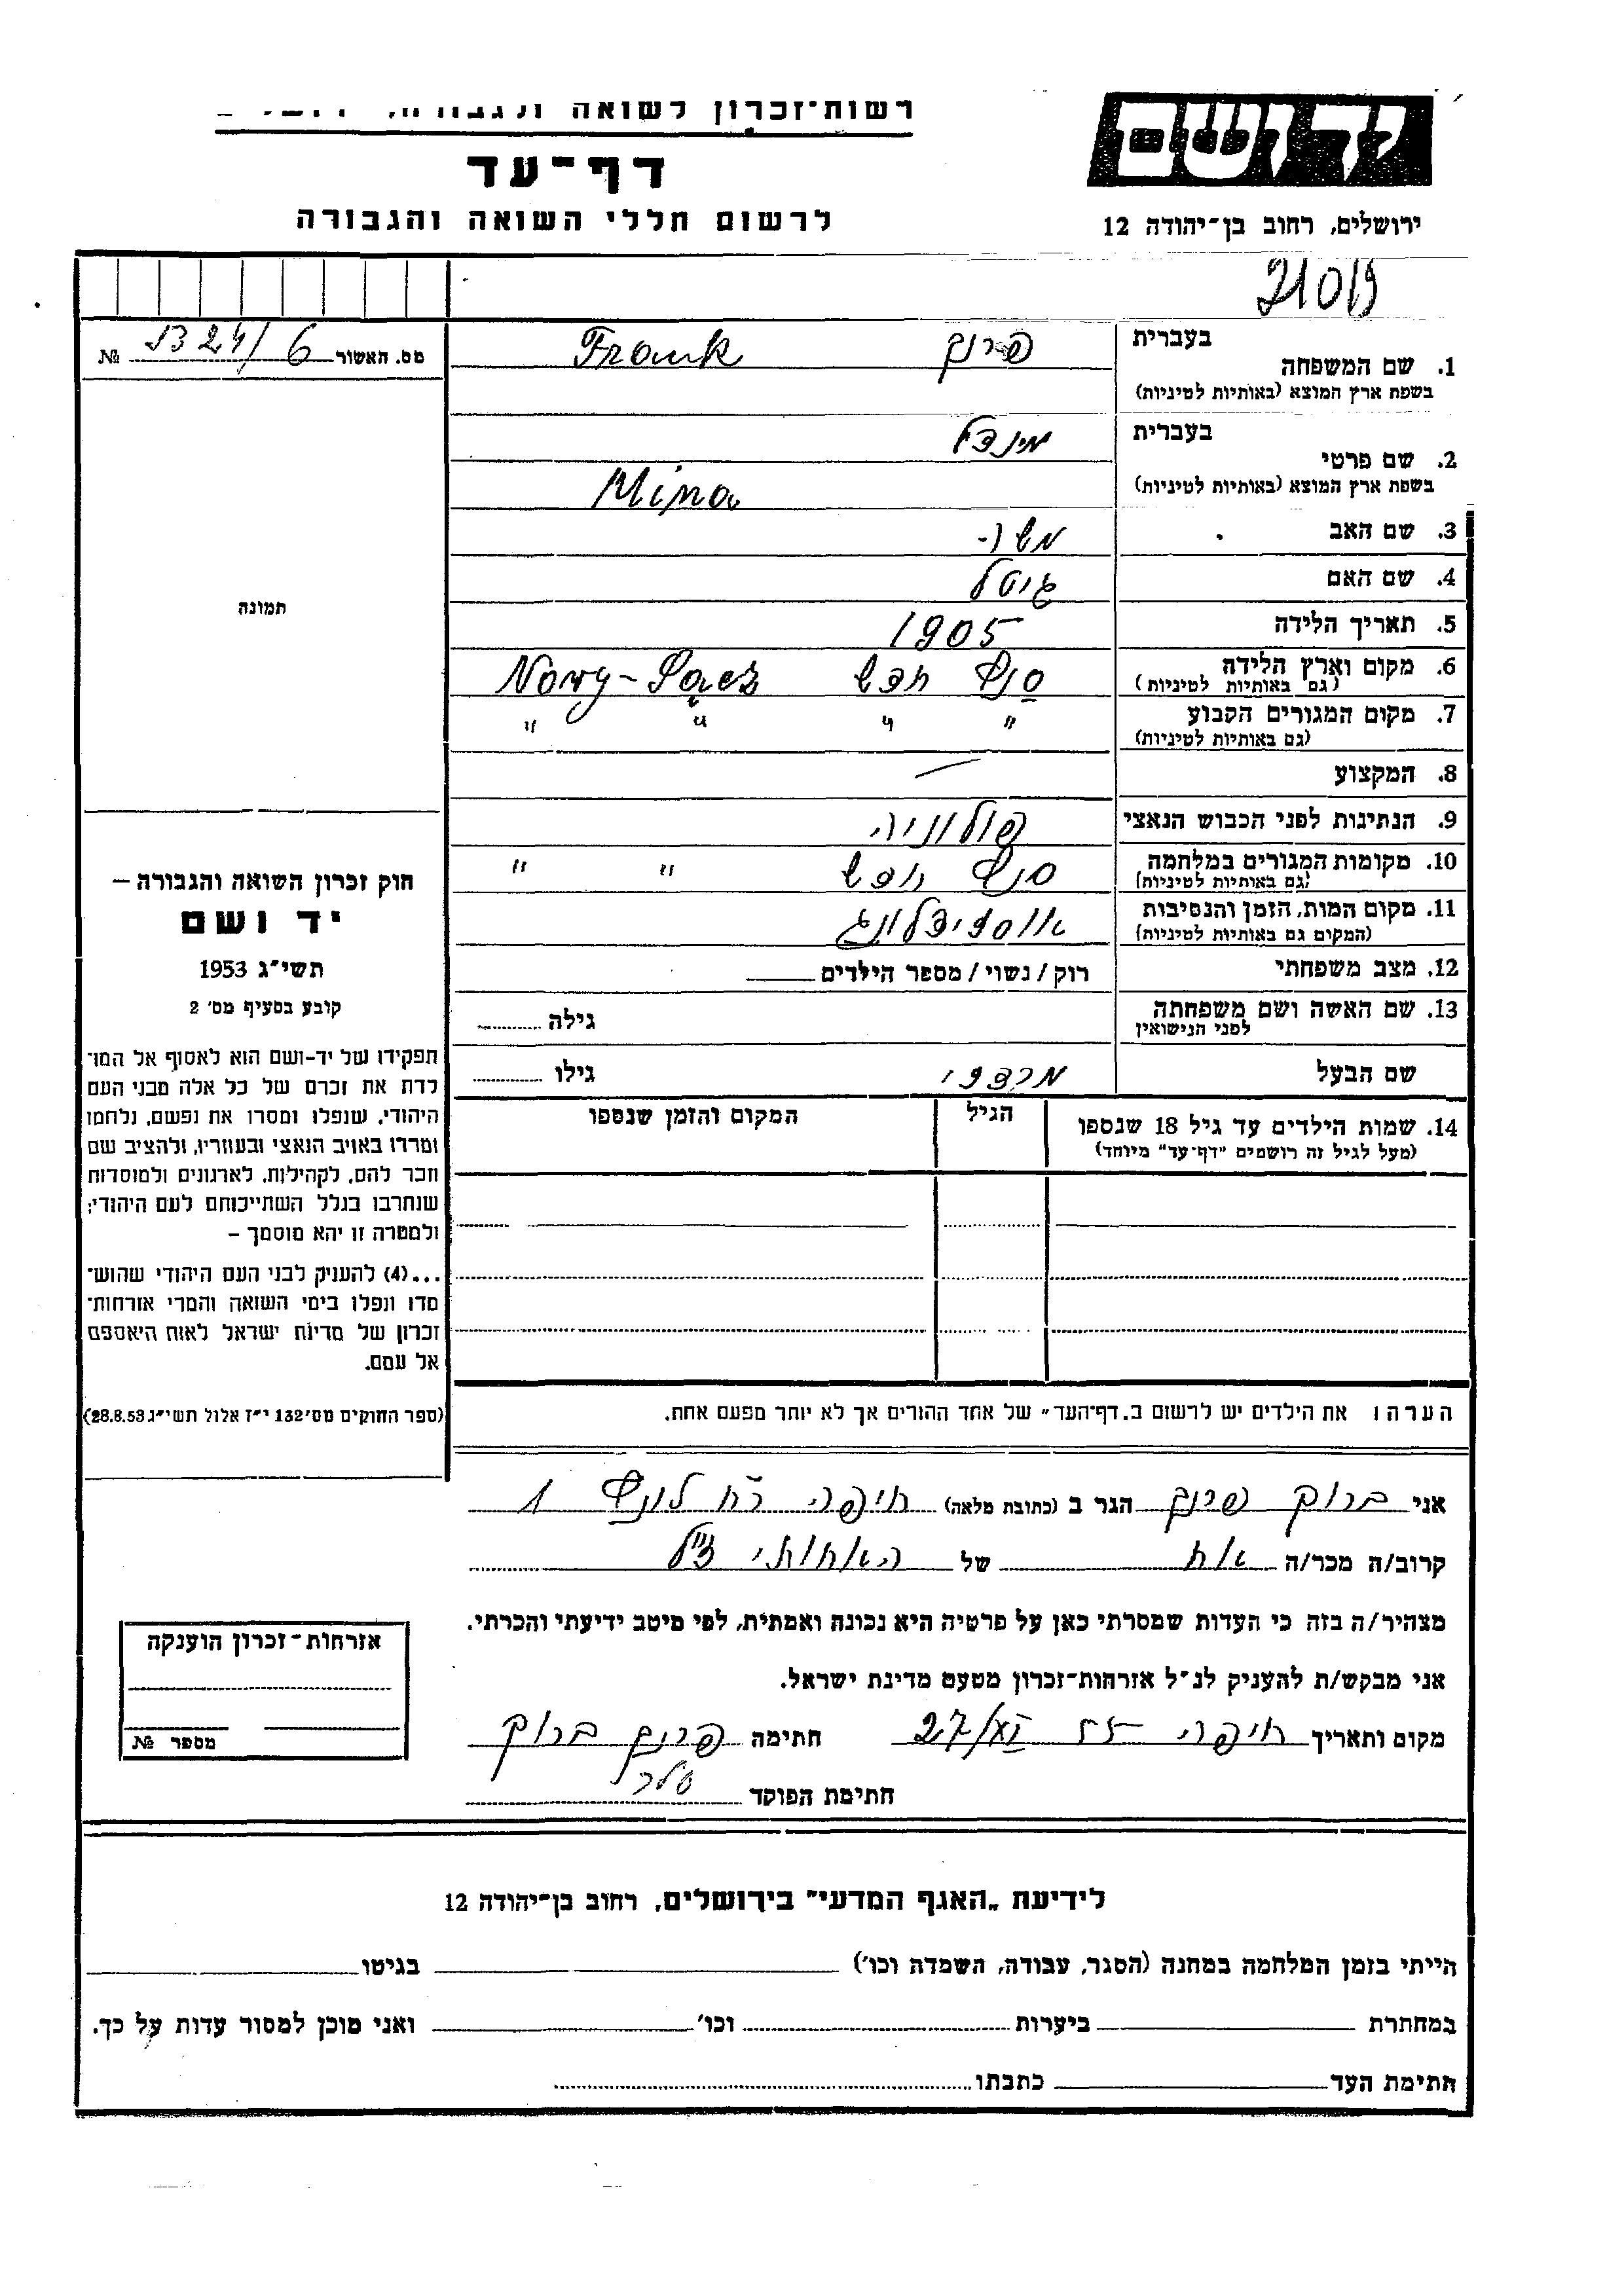 יד ושם
ירושלים, רחוב בן-יהודה 12
רשות-זכרון לשואה
דף-עד
לרשום חללי השואה והגבורה
21019
מס. האשור № 6
1. שם המשפחה
בעברית
פרנק Frank
בשפת ארץ המוצא (באותיות לטיניות)
2. שם פרטי
בעברית
מינדל
בשפת ארץ המוצא (באותיות לטיניות)
Mina
3. שם האב
4. שם האם גיטל
5. תאריך הלידה 1905
6. מקום וארץ הלידה
(גם באותיות לטיניות)
Nowy-Sącz
7. מקום המגורים הקבוע " " " "
(גם באותיות לטיניות)
8. המקצוע —
9. הנתינות לפני הכבוש הנאצי פולוניה
10. מקומות המגורים במלחמה " "
(גם באותיות לטיניות)
11. מקום המות, הזמן והנסיבות
(המקום גם באותיות לטיניות)
12. מצב משפחתי רוק / נשוי / מספר הילדים
13. שם האשה ושם משפחתה גילה
לפני הנישואין
שם הבעל מרדכי גילו
14. שמות הילדים עד גיל 18 שנספו הגיל המקום והזמן שנספו
(מעל לגיל זה רושמים "דף-עד" מיוחד)
תמונה
חוק זכרון השואה והגבורה –
יד ושם
תשי״ג 1953
קובע בסעיף מס׳ 2
תפקידו של יד-ושם הוא לאסוף אל המו־
לדת את זכרם של כל אלה מבני העם
היהודי, שנפלו ומסרו את נפשם, נלחמו
ומרדו באויב הנאצי ובעוזריו, ולהציב שם
וזכר להם, לקהילות, לארגונים ולמוסדות
שנחרבו בגלל השתייכותם לעם היהודי;
ולמטרה זו יהא מוסמך –
...(4) להעניק לבני העם היהודי שהוש־
מדו ונפלו בימי השואה והמרי אזרחות־
זכרון של מדינת ישראל לאות היאספם
אל עמם.
(ספר החוקים מס׳ 132 י״ז אלול תשי״ג 28.8.53)
הערה: את הילדים יש לרשום ב„דף-העד״ של אחד ההורים אך לא יותר מפעם אחת.
אני ברוך פרנק הגר ב (כתובת מלאה) חיפה רח 1
קרוב/ה מכר/ה אח של האחותי ז״ל
מצהיר/ה בזה כי העדות שמסרתי כאן על פרטיה היא נכונה ואמתית, לפי מיטב ידיעתי והכרתי.
אני מבקש/ת להעניק לנ״ל אזרחות-זכרון מטעם מדינת ישראל.
מקום ותאריך חיפה 55 27 חתימה פרנק ברוך
חתימת הפוקד
אזרחות-זכרון הוענקה
מספר №
לידיעת „האגף המדעי״ בירושלים, רחוב בן-יהודה 12
הייתי בזמן המלחמה במחנה (הסגר, עבודה, השמדה וכו׳) בגיטו
במחתרת ביערות וכו׳ ואני מוכן למסור עדות על כך.
חתימת העד כתבתו